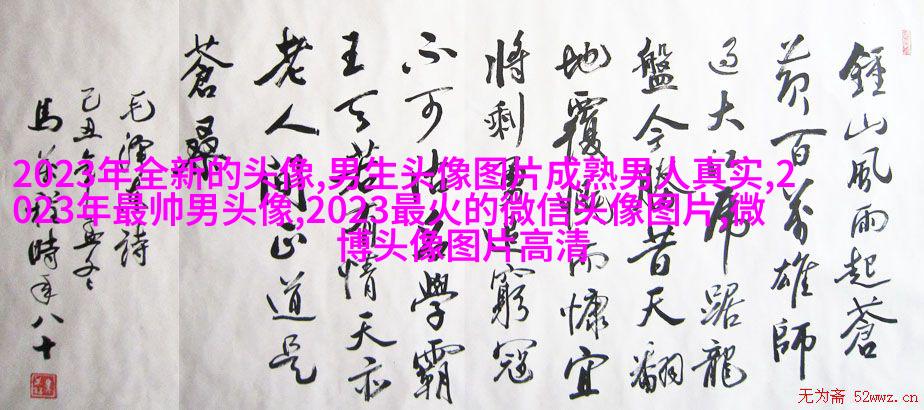 鍾山風雨起蒼
黄百萬雄師
过大江虎踞龍
盤今勝昔天翻
地覆慨而慷宜
将剩勇追窮寇
不可沽名學霸
王天若有情天亦
老人间正道是
蒼桑
毛澤東詩
己丑年孟冬
馬 時年八十
2023年全新的头像,男生头像图片成熟男人真实,2
023年最帅男头像,2023最火的微信头像图片,微
博头像图片高清
无为斋 52wwz.cn